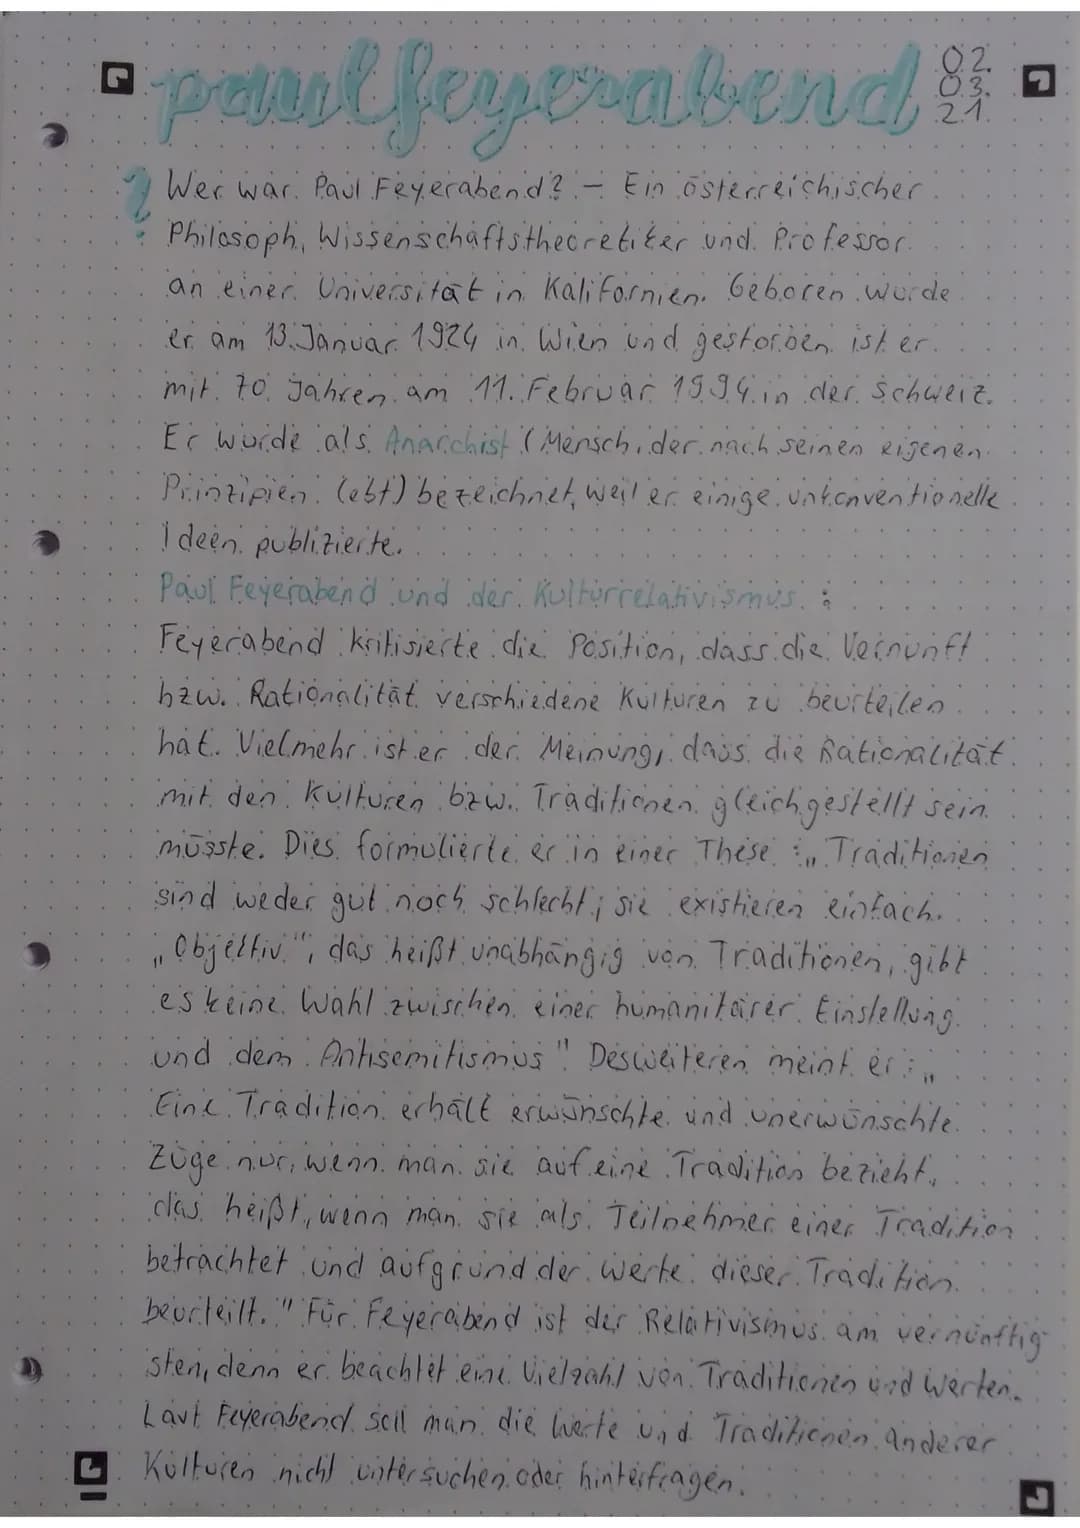 paul feyerabend
02.
03.
21.
? Wer war Paul Feyerabend? – Ein österreichischer
Philosoph, Wissenschaftstheoretiker und Professor
an einer Universität in Kalifornien. Geboren wurde
er am 13. Januar 1924 in Wien und gestorben ist er
mit 70 Jahren am 11. Februar 1994 in der Schweiz.
Er wurde als Anarchist (Mensch, der nach seinen eigenen
Prinzipien lebt) bezeichnet, weil er einige unkonventionelle
Ideen publizierte.
Paul Feyerabend und der Kulturrelativismus :
Feyerabend kritisierte die Position, dass die Vernunft
bzw. Rationalität verschiedene Kulturen zu beurteilen
hat. Vielmehr ist er der Meinung, dass die Rationalität
mit den Kulturen bzw. Traditionen gleichgestellt sein
müsste. Dies formulierte er in einer These : „Traditionen
sind weder gut noch schlecht; sie existieren einfach.
„Objektiv", das heißt unabhängig von Traditionen, gibt
es keine Wahl zwischen einer humanitärer Einstellung
und dem Antisemitismus". Desweiteren meint er : „
Eine Tradition erhält erwünschte und unerwünschte
Züge nur, wenn man sie auf eine Tradition bezieht,
das heißt, wenn man sie als Teilnehmer einer Tradition
betrachtet und aufgrund der Werte dieser Tradition
beurteilt." Für Feyerabend ist der Relativismus am vernünftig
sten, denn er beachtet eine Vielzahl von Traditionen und Werten.
Laut Feyerabend soll man die Werte und Traditionen anderer
Kulturen nicht untersuchen oder hinterfragen.